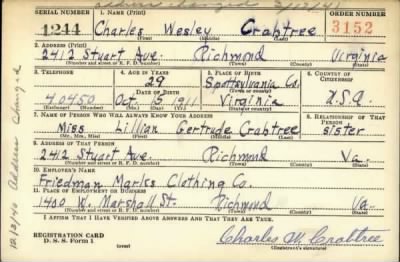 address changed 2/12/41
SERIAL NUMBER 1. NAME (Print) ORDER NUMBER
1244 Charles Wesley Crabtree 3152
(First) (Middle) (Last)
2. ADDRESS (Print)
2412 Stuart Ave. Richmond Virginia
(Number and street or R. F. D. number) (Town) (County) (State)
3. TELEPHONE 4. AGE IN YEARS 5. PLACE OF BIRTH 6. COUNTRY OF CITIZENSHIP
28 Spottsylvania Co.
DATE OF BIRTH (Town or county)
40450 Oct. 15 1911 Virginia U.S.A.
(Exchange) (Number) (Mo.) (Day) (Yr.) (State or country)
7. NAME OF PERSON WHO WILL ALWAYS KNOW YOUR ADDRESS 8. RELATIONSHIP OF THAT PERSON
Miss Lillian Gertrude Crabtree sister
(Mr., Mrs., Miss) (First) (Middle) (Last)
9. ADDRESS OF THAT PERSON
2412 Stuart Ave. Richmond Va.
(Number and street or R. F. D. number) (Town) (County) (State)
10. EMPLOYER'S NAME
Friedman Marks Clothing Co.
11. PLACE OF EMPLOYMENT OR BUSINESS
1400 W. Marshall St. Richmond Va.
(Number and street or R. F. D. number) (Town) (County) (State)
I AFFIRM THAT I HAVE VERIFIED ABOVE ANSWERS AND THAT THEY ARE TRUE.
REGISTRATION CARD
D. S. S. Form 1 (over) Charles W. Crabtree
(Registrant's signature)
12/3/40 Address Changed